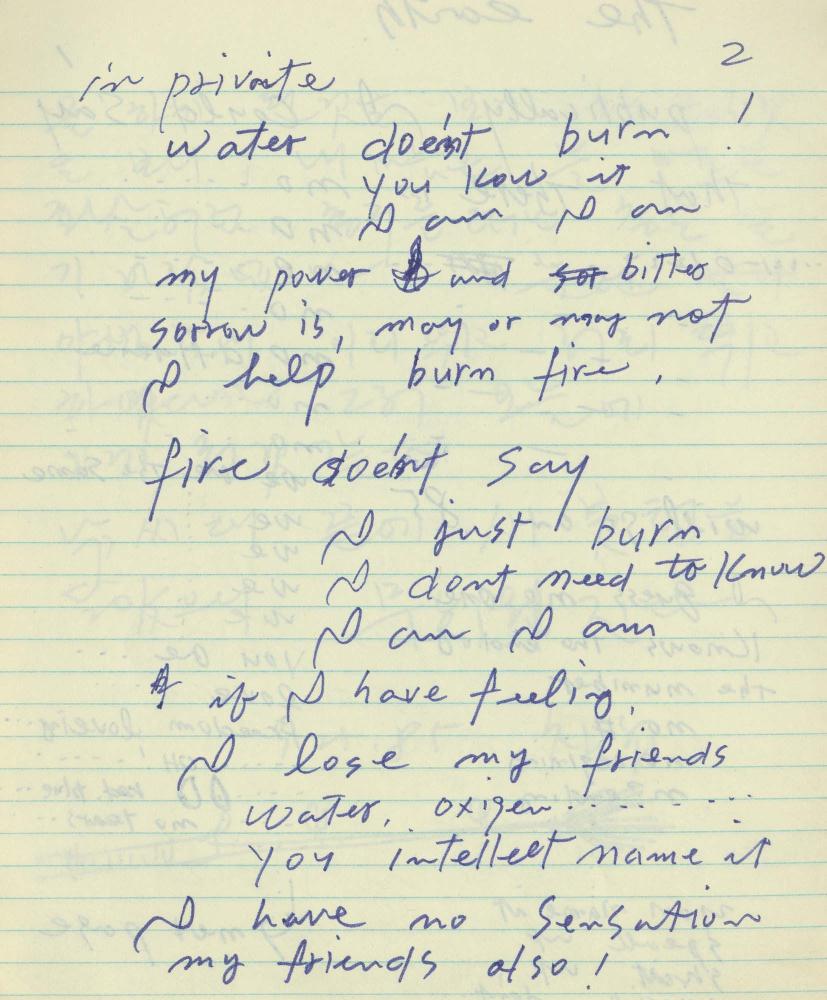 2
in private
water does'nt burn !
you know it
I am I am
my power and bitter
sorrow is, may or may not
I help burn fire.
fire does'nt say
I just burn
I dont need to know
I am I am
if I have feeling,
I lose my friends
water, oxigen ........
you intellect name it
I have no sensation
my friends also!